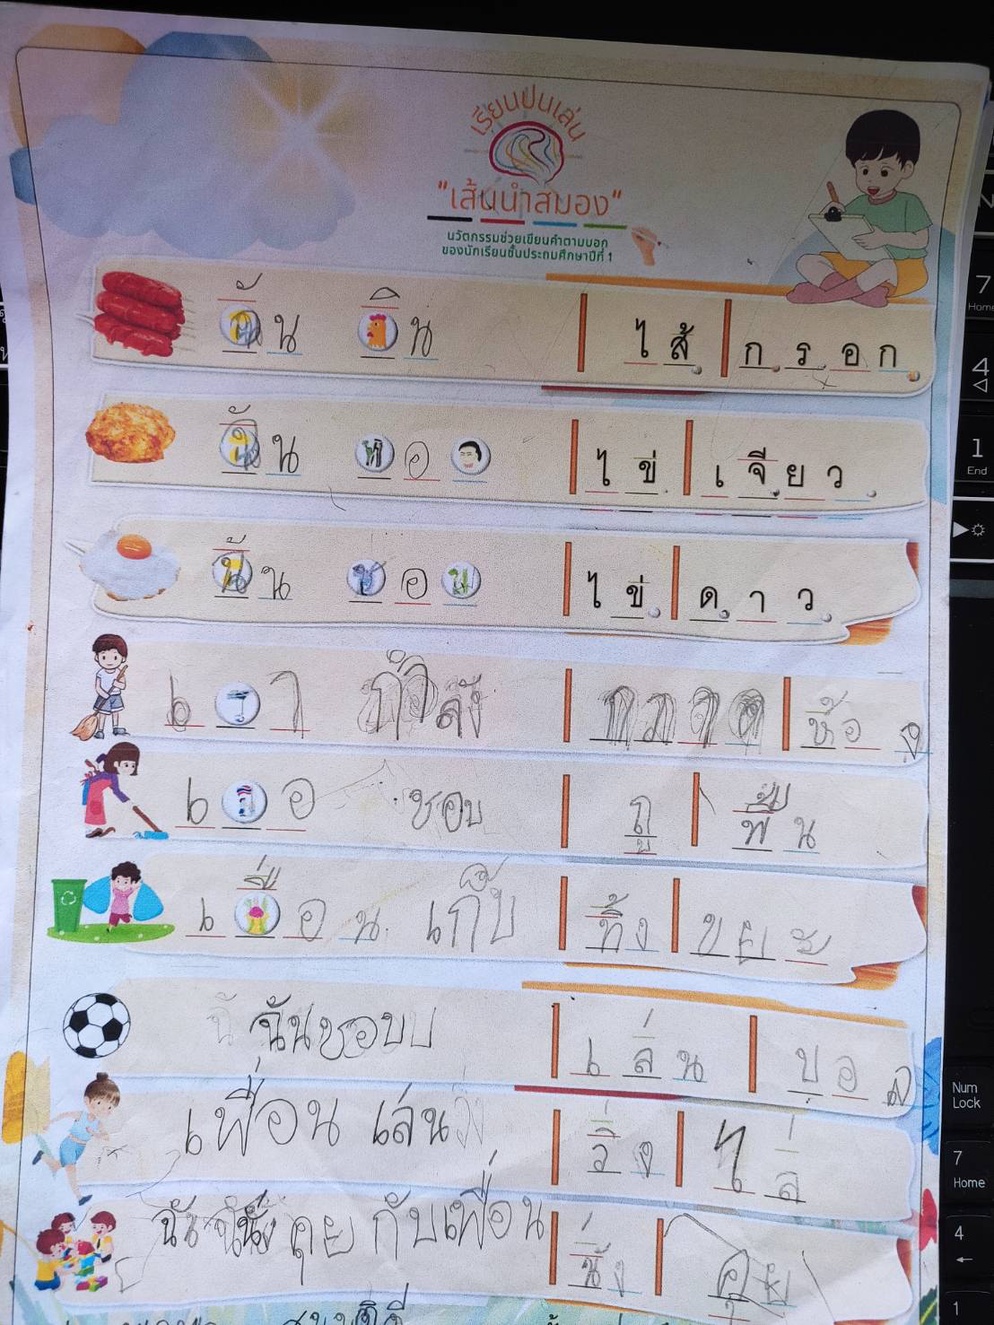 เรียนปนเล่น
"เส้นนำสมอง"
นวัตกรรมช่วยเขียนคำตามบอก
ของนักเรียนชั้นประถมศึกษาปีที่ 1
ฉัน กิน ไส้ กรอก
ฉัน ทอ ไข่ เจียว
ฉัน ชอ ไข่ ดาว
เรา กำลัง กวาด ห้อง
เธอ ชอบ ถู พื้น
เพื่อน เก็บ ทิ้ง ขยะ
ฉันชอบ เล่น บอล
เพื่อน เล่น วิ่ง ไล่
ฉัน คุย กับเพื่อน นั่ง คุย
7
Home
4
1
End
Num
Lock
7
Home
4
1